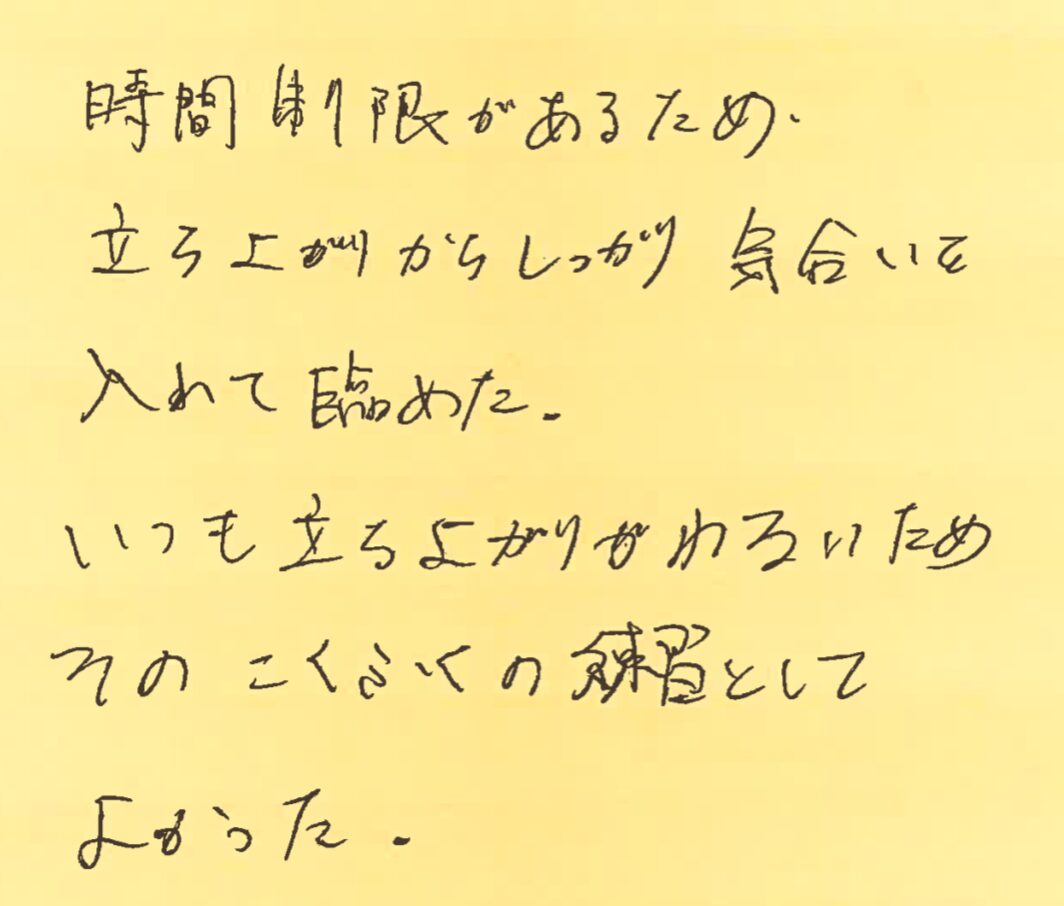 時間制限があるため、
立ち上がりからしっかり気合いを
入れて臨めた。
いつも立ち上がりがわるいため
そのこくふくの練習として
よかった。